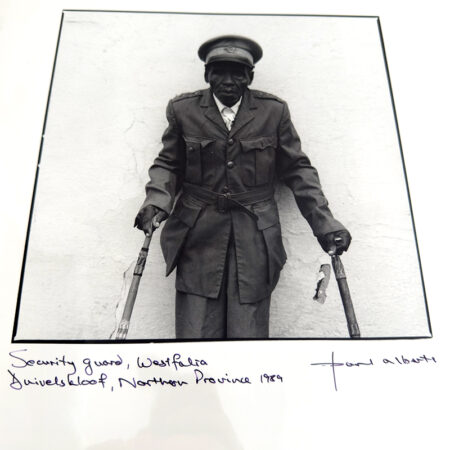 Security guard, Westfalia
Duivelskloof, Northern Province 1989
Paul Alberts